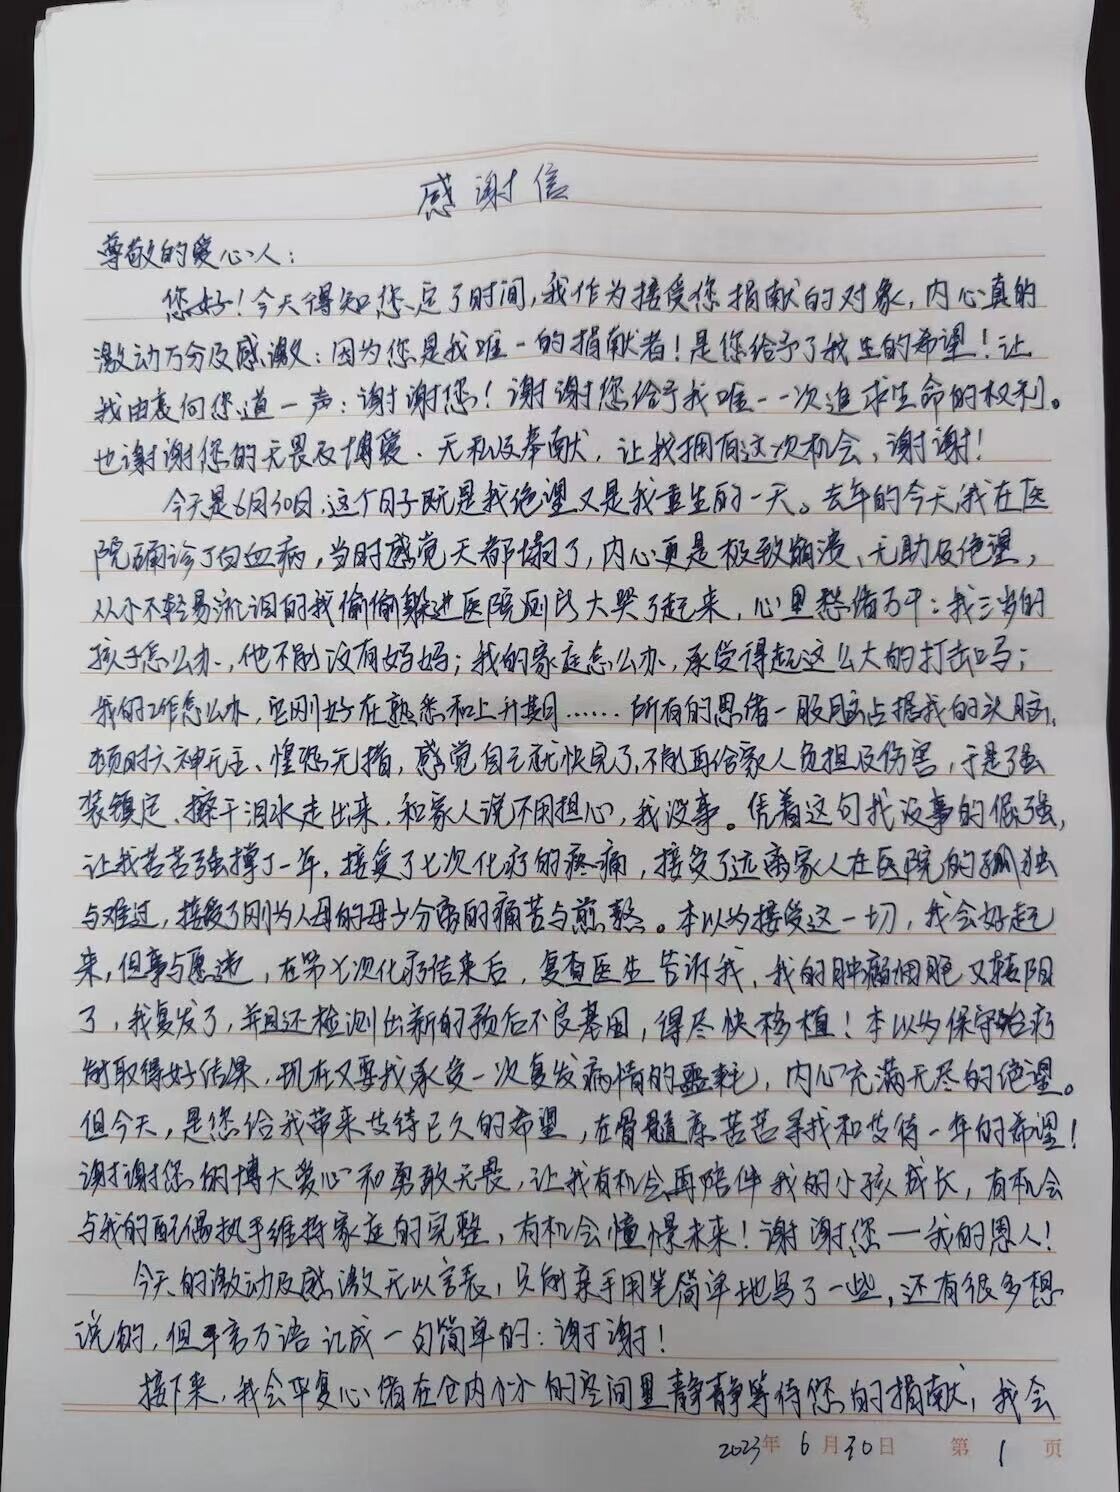 感谢信
尊敬的爱心人：
您好！今天得知您定了时间，我作为接受您捐献的对象，内心真的
激动万分及感激：因为您是我唯一的捐献者！是您给予了我生的希望！让
我由衷向您道一声：谢谢您！谢谢您给予我唯一一次追求生命的权利。
也谢谢您的无畏及博爱、无私及奉献，让我拥有这次机会，谢谢！
今天是6月30日，这个日子既是我绝望又是我重生的一天。去年的今天，我在医
院确诊了白血病，当时感觉天都塌了，内心更是极致崩溃、无助及绝望，
从小不轻易流泪的我偷偷躲进医院厕所大哭了起来，心里愁绪万千：我三岁的
孩子怎么办，他不能没有妈妈；我的家庭怎么办，承受得起这么大的打击吗；
我的工作怎么办，它刚好在熟悉和上升期……所有的思绪一股脑占据我的头脑，
顿时六神无主、惶恐无措，感觉自己就快完了，不能再给家人负担及伤害，于是强
装镇定、擦干泪水走出来，和家人说不用担心，我没事。凭着这句我没事的倔强，
让我苦苦强撑了一年，接受了七次化疗的疼痛，接受了远离家人在医院的孤独
与难过，接受了刚为人母的母少分离的痛苦与煎熬。本以为接受这一切，我会好起
来，但事与愿违，在第七次化疗结束后，复查医生告诉我，我的肿瘤细胞又转阳
了，我复发了，并且还检测出新的预后不良基因，得尽快移植！本以为保守治疗
能取得好结果，现在又要我承受一次复发病情的噩耗，内心充满无尽的绝望。
但今天，是您给我带来支待已久的希望，在骨髓库苦苦寻找和支待一年的希望！
谢谢您的博大爱心和勇敢无畏，让我有机会再陪伴我的小孩成长，有机会
与我的配偶执手维持家庭的完整，有机会憧憬未来！谢谢您——我的恩人！
今天的激动及感激无以言表，只能亲手用笔简单地写了一些，还有很多想
说的，但千言万语汇成一句简单的：谢谢！
接下来，我会平复心绪在仓内小小的空间里静静等待您的捐献，我会
2023年6月30日 第1页